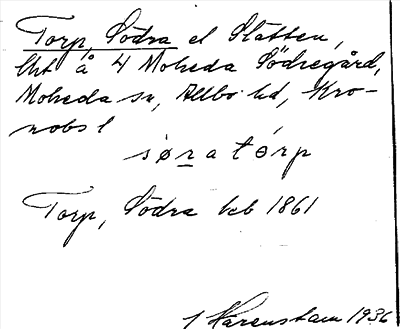 Torp, Södra el Slätten,
lht å 4 Moheda Södregård,
Moheda sn, Allbo hd, Kro-
nobs l
sør̲a tórp
Torp, Södra beb 1861
J Harenstam 1936